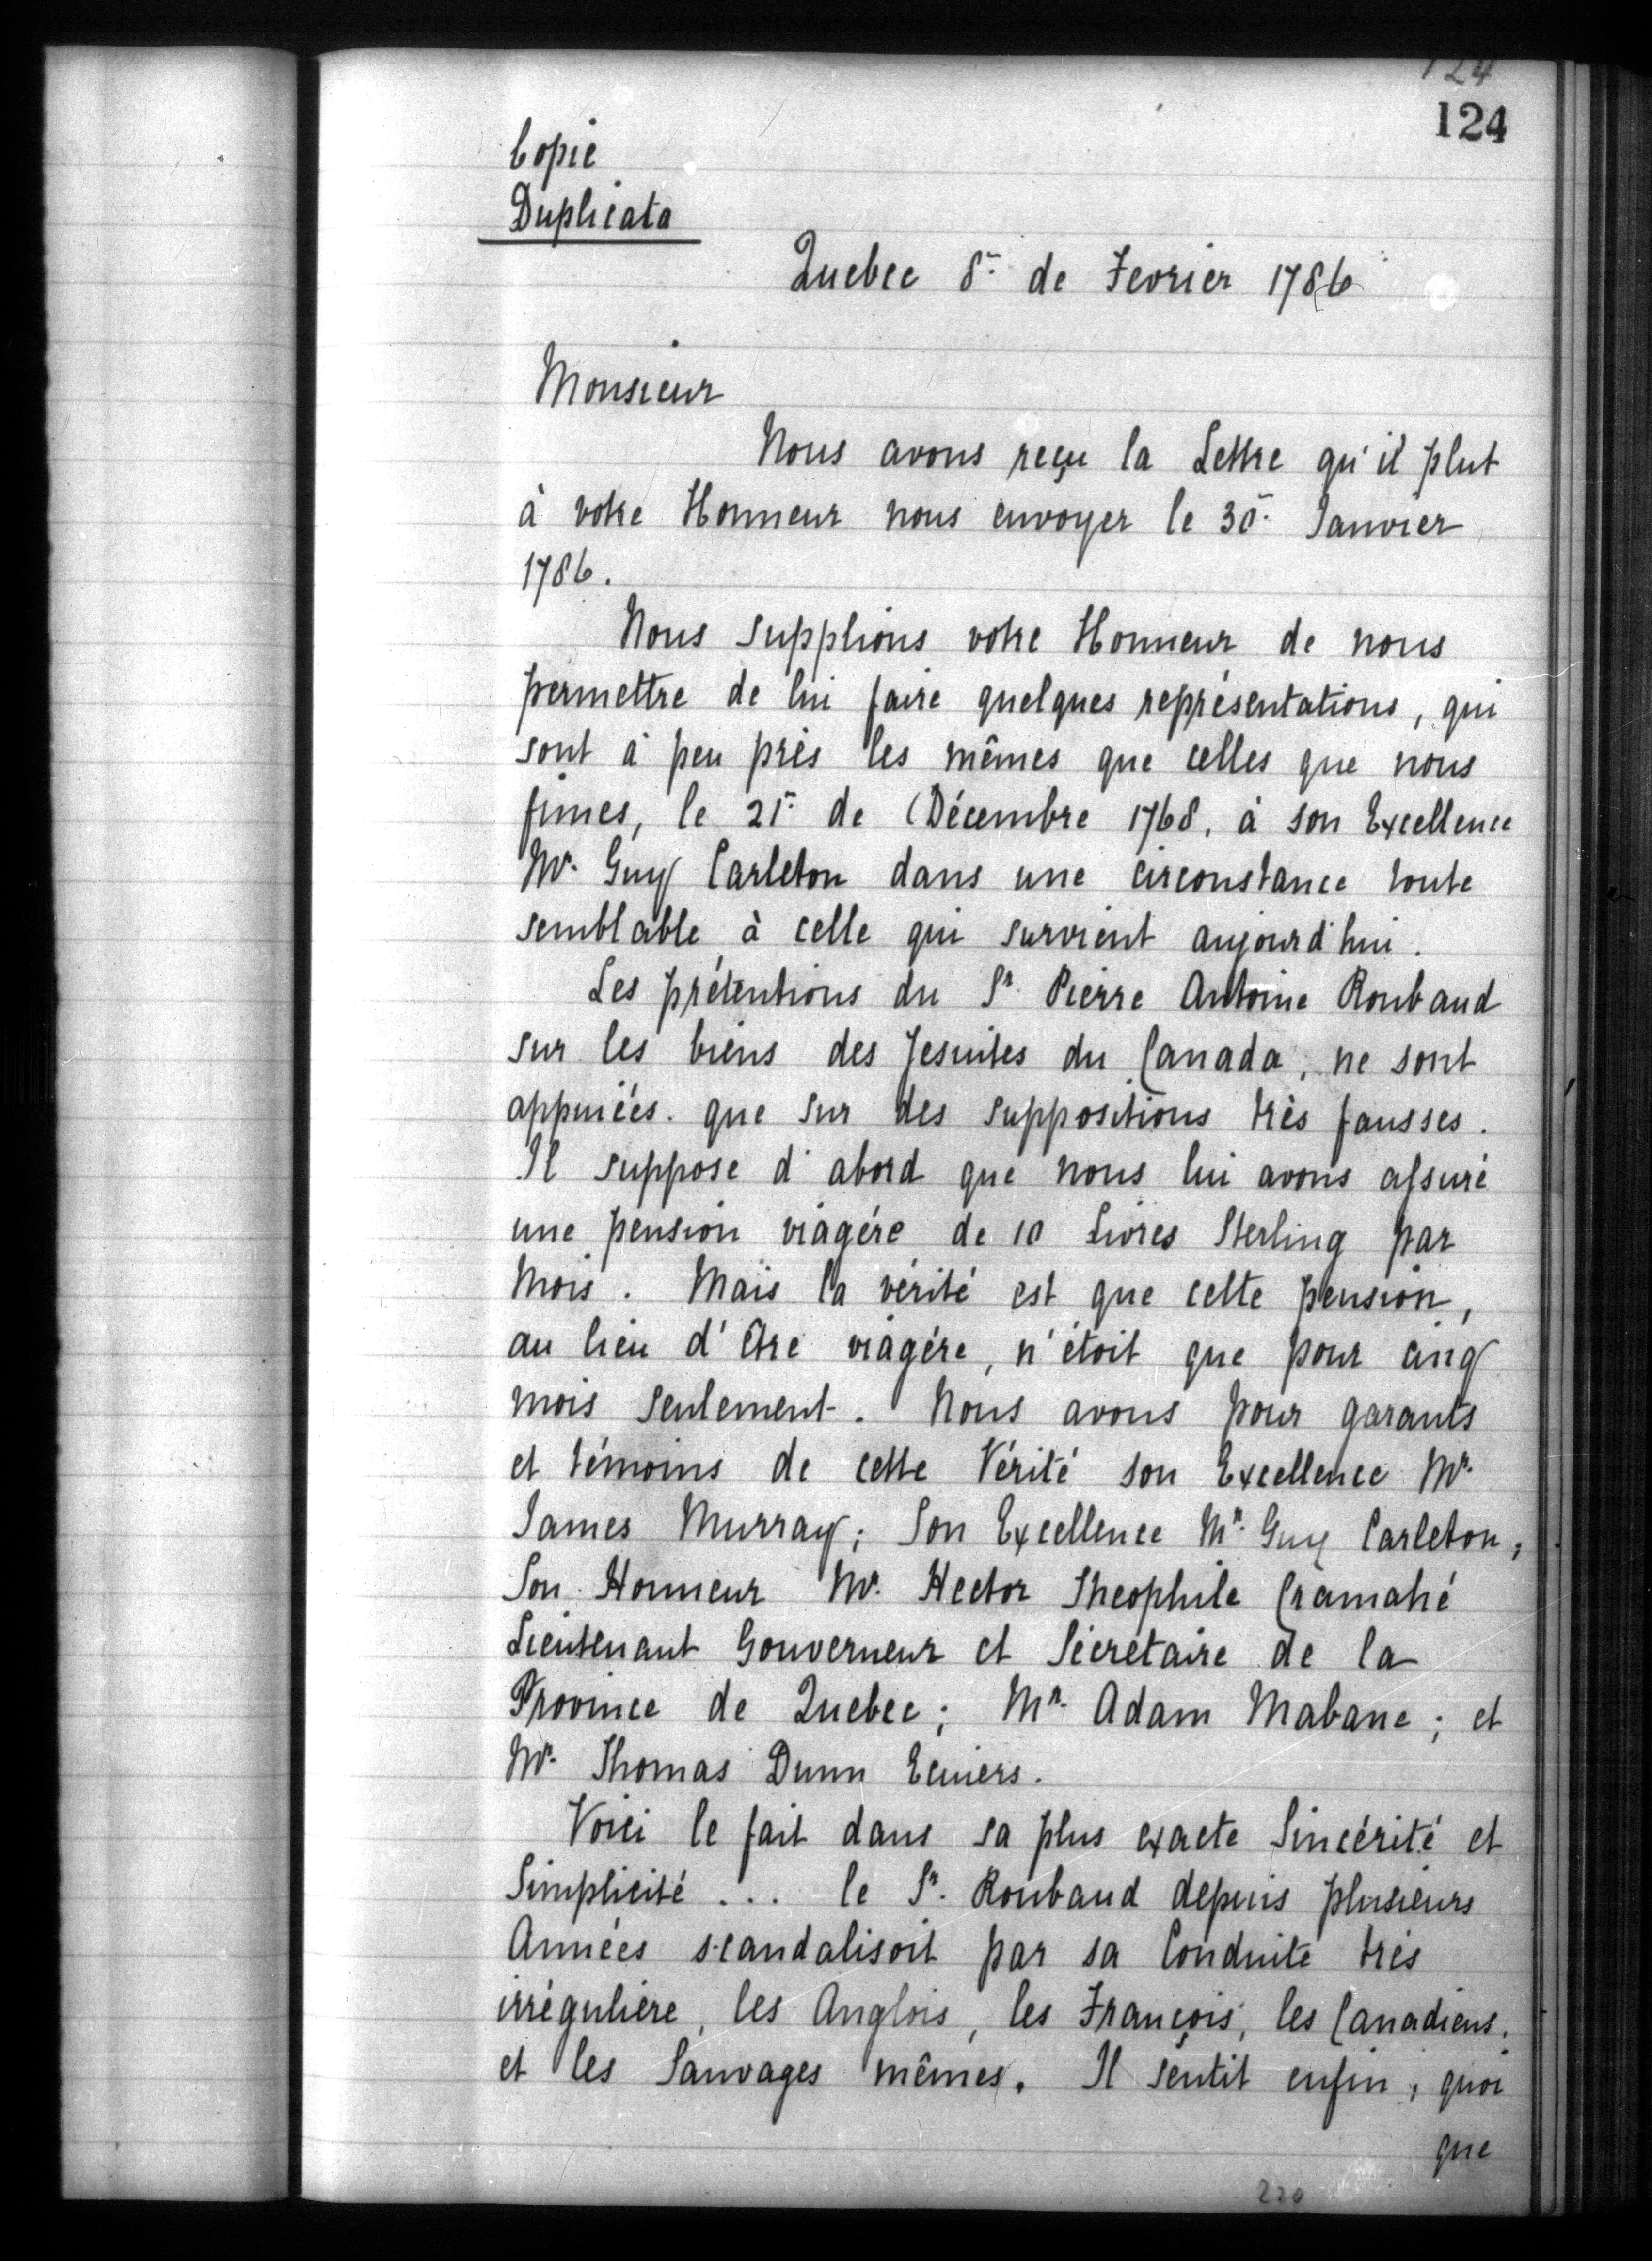 124
124
Copie
Duplicata
Quebec 8.e de Fevrier 1786
Monsieur
Nous avons reçu la Lettre qu'il plut
à votre Honneur nous envoyer le 30. Janvier
1786.
Nous supplions votre Honneur de nous
permettre de lui faire quelques représentations, qui
sont à peu près les mêmes que celles que nous
fimes, le 21. de Décembre 1768, à son Excellence
Mr. Guy Carleton dans une circonstance toute
semblable à celle qui survient aujourd'hui.
Les prétentions du Sr. Pierre Antoine Roubaud
sur les biens des Jesuites du Canada, ne sont
appuiées que sur des suppositions très fausses.
Il suppose d'abord que nous lui avons assuré
une pension viagére de 10 Livres Sterling par
Mois. Mais la vérité est que cette pension,
au lieu d'être viagére, n'étoit que pour cinq
mois seulement. Nous avons pour garants
et témoins de cette Vérité son Excellence Mr.
James Murray; Son Excellence Mr. Guy Carleton;
Son Honneur Mr. Hector Theophile Cramahé
Lieutenant Gouverneur et Sécrétaire de la
Province de Quebec; Mr. Adam Mabane; et
Mr. Thomas Dunn Ecuiers.
Voici le fait dans sa plus exacte Sincérité et
Simplicité ... le Sr. Roubaud depuis plusieurs
Années scandalisoit par sa Conduite très
irrégulière, les Anglois, les François, les Canadiens,
et les Sauvages mêmes. Il sentit enfin, quoi
que
220